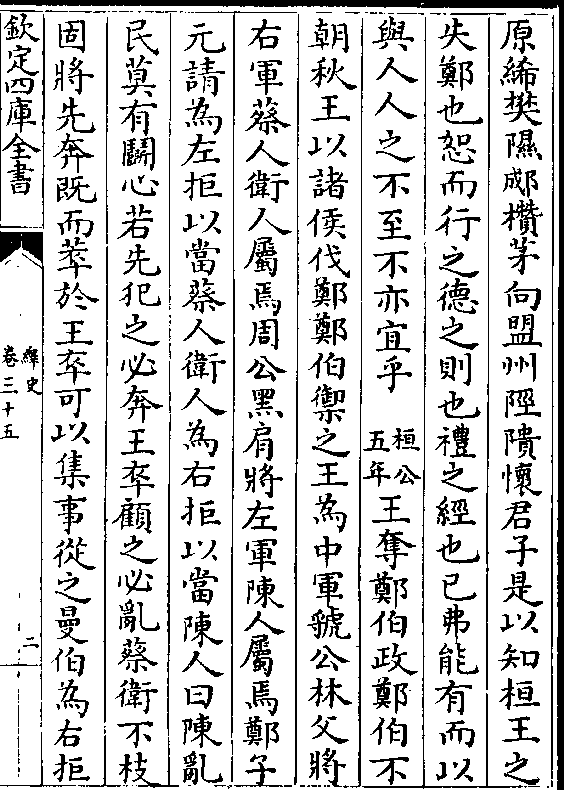 原絺樊隰郕欑茅向盟州陘隤懷君子是以知桓王之
失鄭也恕而行之德之則也禮之經也已弗能有而以
與人人之不至不亦宜乎桓公五年王奪鄭伯政鄭伯不
朝秋王以諸侯伐鄭鄭伯禦之王為中軍虢公林父將
右軍蔡人衛人屬焉周公黑肩將左軍陳人屬焉鄭子
元請為左拒以當蔡人衛人為右拒以當陳人曰陳亂
民莫有鬬心若先犯之必奔王卒顧之必亂蔡衛不枝
固將先奔既而萃於王卒可以集事從之曼伯為右拒
欽定四庫全書
繹史
卷三十五
二